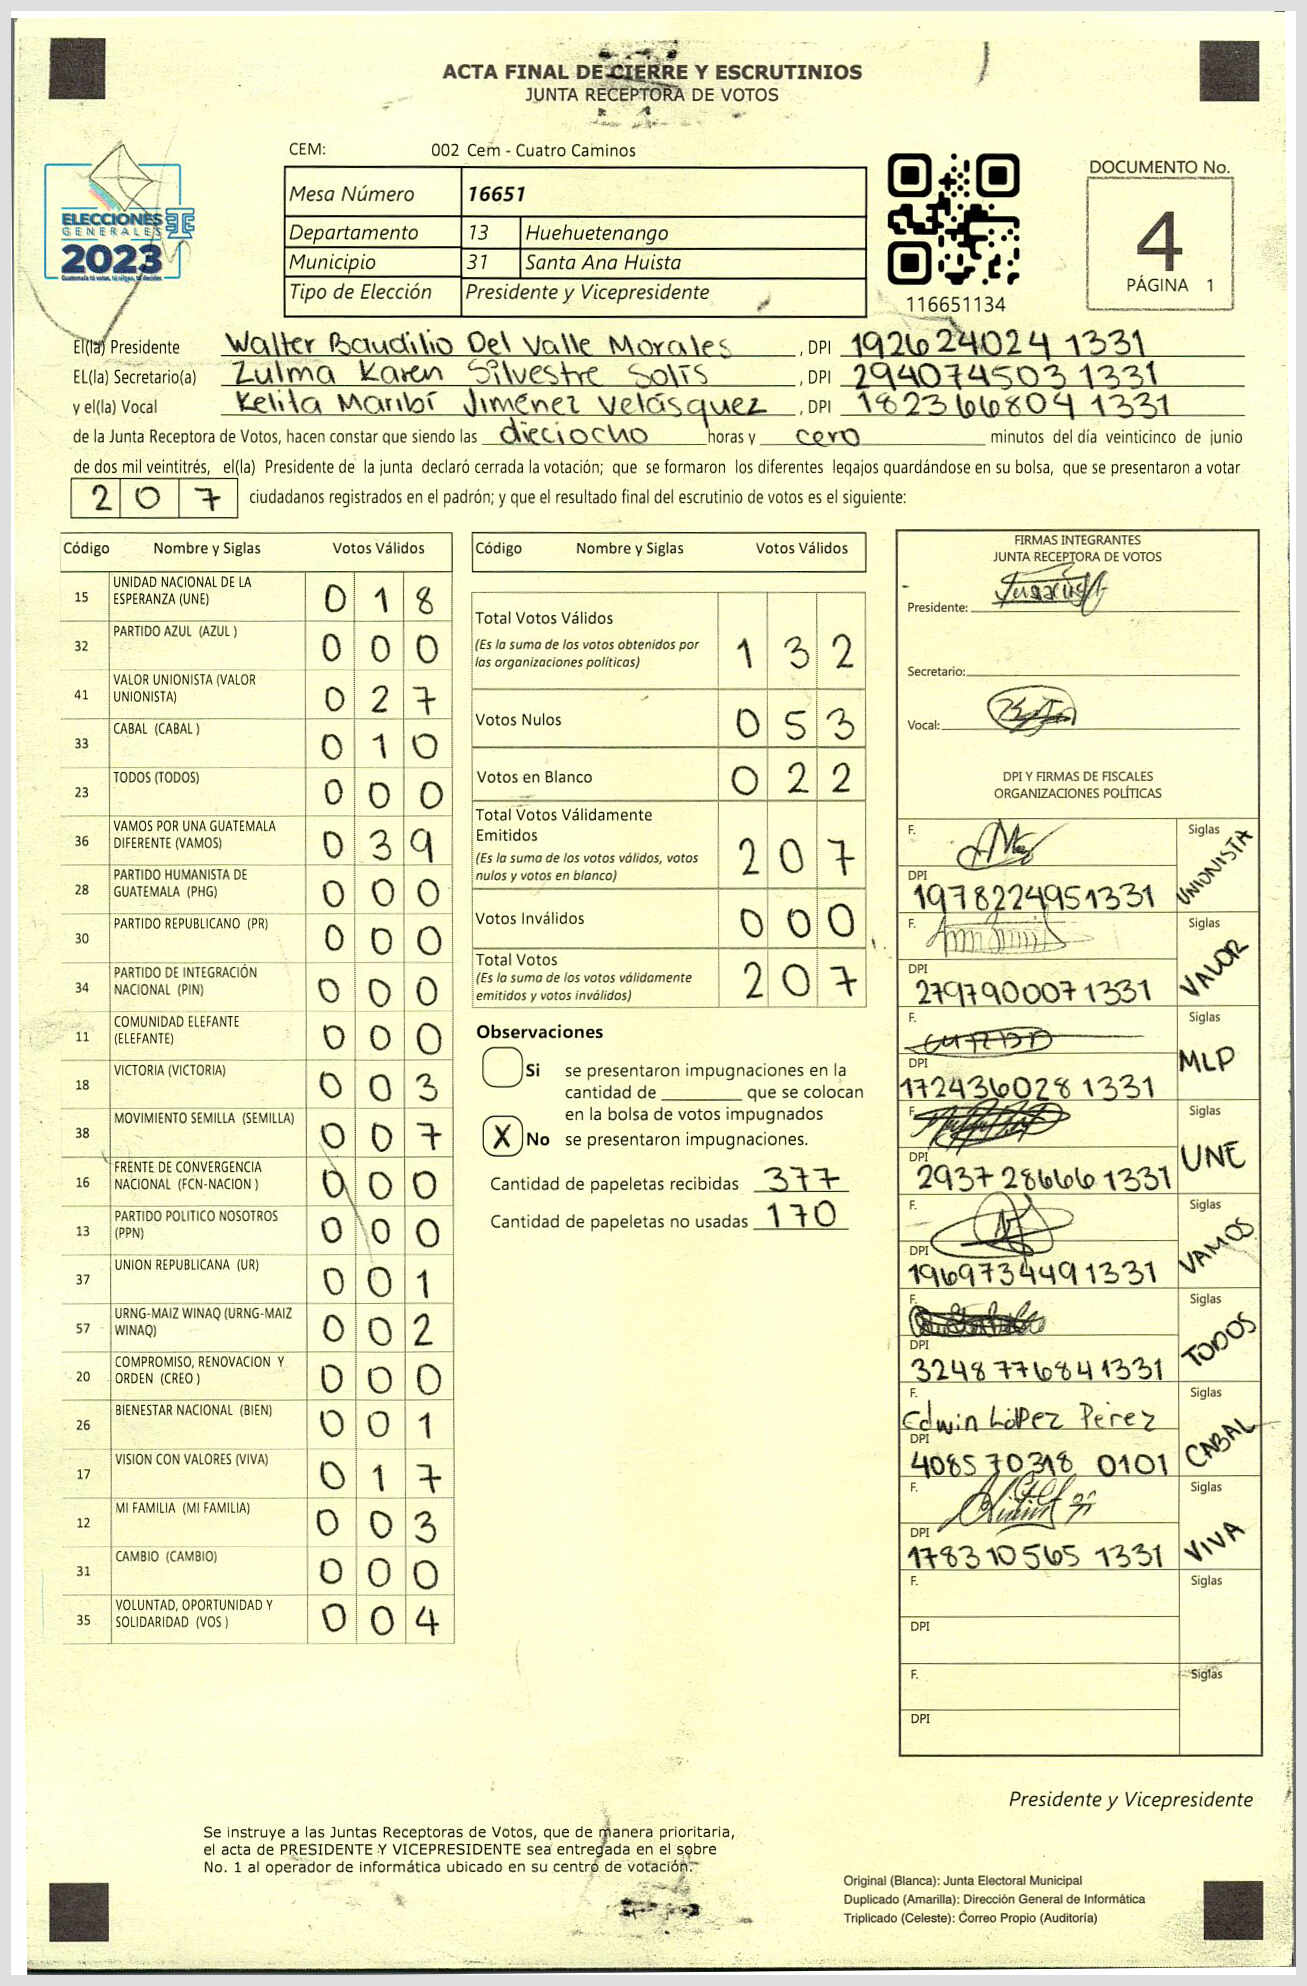 ACTA FINAL DE CIERRE Y ESCRUTINIOS
JUNTA RECEPTORA DE VOTOS
ELECCIONES
GENERALES
2023
Guatemala tú votas, tú eliges, tú decides
CEM: 002 Cem - Cuatro Caminos
Mesa Número 16651
Departamento 13 Huehuetenango
Municipio 31 Santa Ana Huista
Tipo de Elección Presidente y Vicepresidente
116651134
DOCUMENTO No.
4
PÁGINA 1
El(la) Presidente Walter Baudilio Del Valle Morales, DPI 192624024 1331
EL(la) Secretario(a) Zulma Karen Silvestre Solís, DPI 294074503 1331
y el(la) Vocal Kelita Maribí Jiménez Velásquez, DPI 182366804 1331
de la Junta Receptora de Votos, hacen constar que siendo las dieciocho horas y cero minutos del día veinticinco de junio
de dos mil veintitrés, el(la) Presidente de la junta declaró cerrada la votación; que se formaron los diferentes legajos guardándose en su bolsa, que se presentaron a votar
207 ciudadanos registrados en el padrón; y que el resultado final del escrutinio de votos es el siguiente:
Código Nombre y Siglas Votos Válidos
15 UNIDAD NACIONAL DE LA ESPERANZA (UNE) 018
32 PARTIDO AZUL (AZUL ) 000
41 VALOR UNIONISTA (VALOR UNIONISTA) 027
33 CABAL (CABAL ) 010
23 TODOS (TODOS) 000
36 VAMOS POR UNA GUATEMALA DIFERENTE (VAMOS) 039
28 PARTIDO HUMANISTA DE GUATEMALA (PHG) 000
30 PARTIDO REPUBLICANO (PR) 000
34 PARTIDO DE INTEGRACIÓN NACIONAL (PIN) 000
11 COMUNIDAD ELEFANTE (ELEFANTE) 000
18 VICTORIA (VICTORIA) 003
38 MOVIMIENTO SEMILLA (SEMILLA) 007
16 FRENTE DE CONVERGENCIA NACIONAL (FCN-NACION ) 000
13 PARTIDO POLITICO NOSOTROS (PPN) 000
37 UNION REPUBLICANA (UR) 001
57 URNG-MAIZ WINAQ (URNG-MAIZ WINAQ) 002
20 COMPROMISO, RENOVACION Y ORDEN (CREO ) 000
26 BIENESTAR NACIONAL (BIEN) 001
17 VISION CON VALORES (VIVA) 017
12 MI FAMILIA (MI FAMILIA) 003
31 CAMBIO (CAMBIO) 000
35 VOLUNTAD, OPORTUNIDAD Y SOLIDARIDAD (VOS ) 004
Código Nombre y Siglas Votos Válidos
Total Votos Válidos 132
(Es la suma de los votos obtenidos por
las organizaciones políticas)
Votos Nulos 053
Votos en Blanco 022
Total Votos Válidamente
Emitidos 207
(Es la suma de los votos válidos, votos
nulos y votos en blanco)
Votos Inválidos 000
Total Votos 207
(Es la suma de los votos válidamente
emitidos y votos inválidos)
Observaciones
Si se presentaron impugnaciones en la
cantidad de ________ que se colocan
en la bolsa de votos impugnados
X No se presentaron impugnaciones.
Cantidad de papeletas recibidas 377
Cantidad de papeletas no usadas 170
FIRMAS INTEGRANTES
JUNTA RECEPTORA DE VOTOS
Presidente:
Secretario:
Vocal:
DPI Y FIRMAS DE FISCALES
ORGANIZACIONES POLÍTICAS
F. Siglas
DPI UNIONISTA
1978224951331
F. Siglas
DPI VALOR
2797900071331
F. Siglas
DPI MLP
172436028 1331
F. Siglas
DPI UNE
2937 28666 1331
F. Siglas
DPI VAMOS
1969734491331
F. Siglas
DPI TODOS
3248 776841331
F. Siglas
Edwin López Pérez
DPI CABAL
408570318 0101
F. Siglas
DPI VIVA
178310565 1331
F. Siglas
DPI
F. Siglas
DPI
Presidente y Vicepresidente
Se instruye a las Juntas Receptoras de Votos, que de manera prioritaria,
el acta de PRESIDENTE Y VICEPRESIDENTE sea entregada en el sobre
No. 1 al operador de informática ubicado en su centro de votación.
Original (Blanca): Junta Electoral Municipal
Duplicado (Amarilla): Dirección General de Informática
Triplicado (Celeste): Correo Propio (Auditoría)